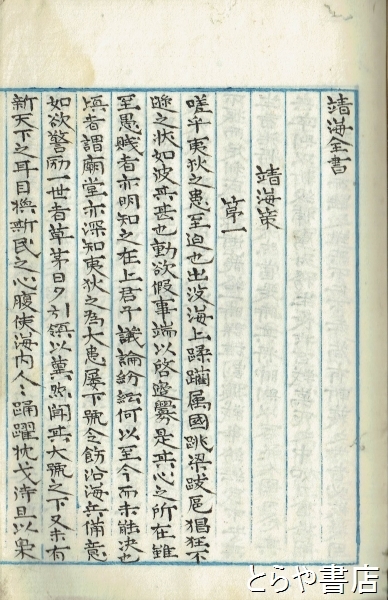 靖海全書
靖海策
第一
嗟乎夷狄之患至迫也出没海上蹂躙属國跳梁跋扈猖狂不
遜之状如彼其甚也動欲假事端以啓邉釁是其心之所在雖
至愚賎者亦明知之在上君子議論紛紜何以至今而未能决也
者謂廟堂亦深知夷狄之為大患屡下號令飭沿海兵備意
如欲警励一世者草茅日夕引領以冀忽聞其大號之下又未有
新天下之耳目換新民之心腹使海内人〻踊躍枕戈待旦以梟
とらや書店